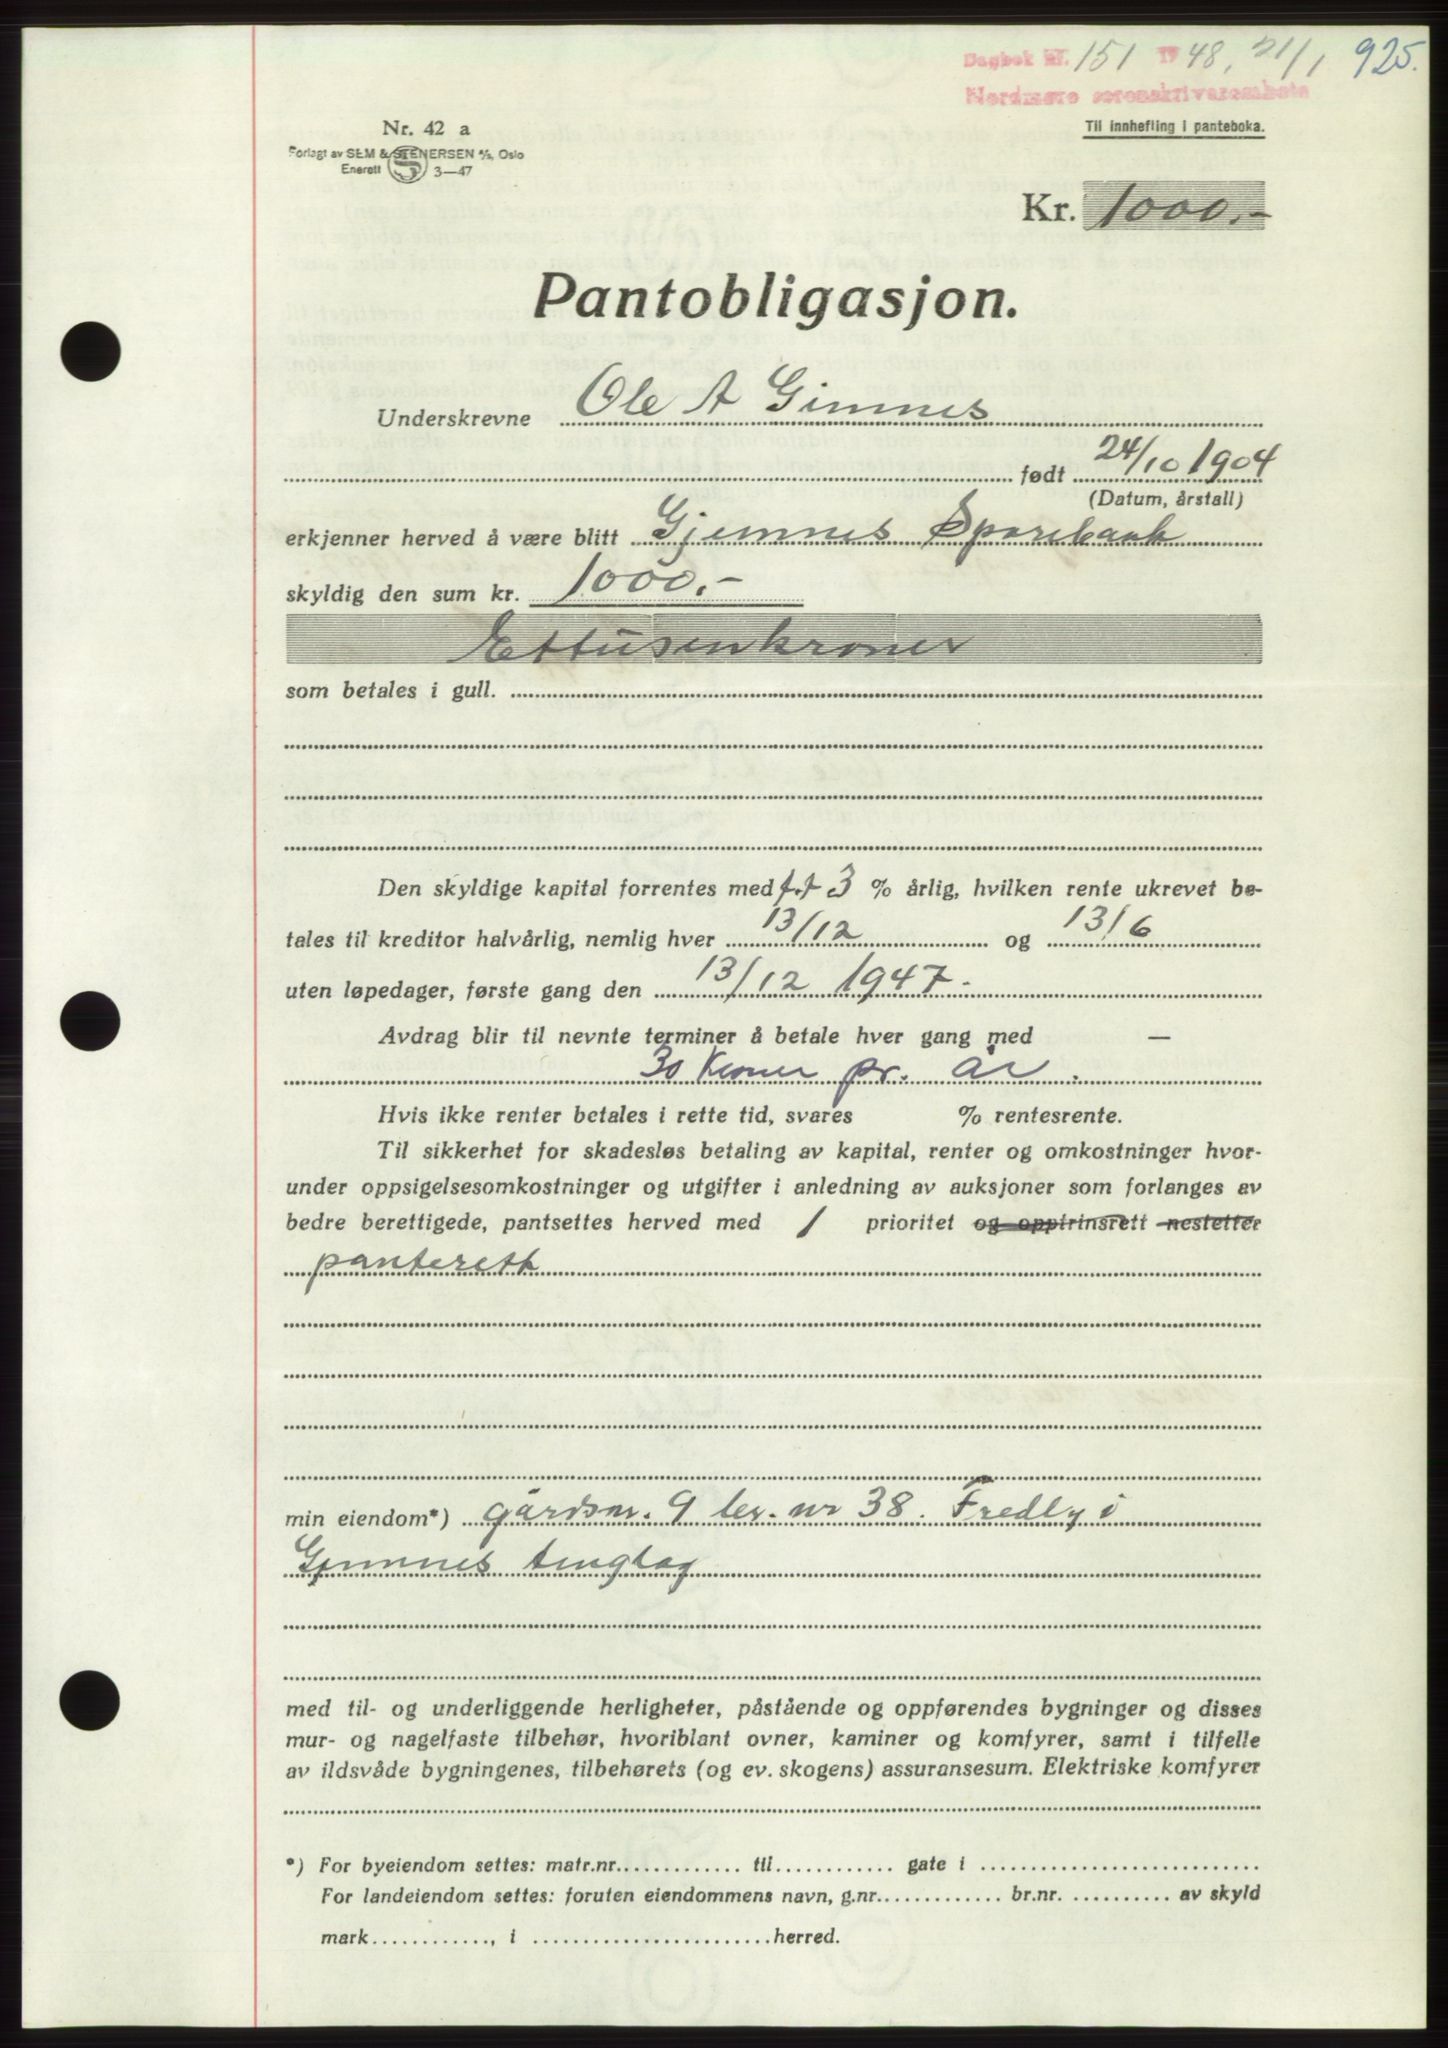 Dagbok nr. 151 1948, 21/1 925.
Nordmøre sorenskrivarembete
Nr. 42 a
Til innhefting i panteboka.
Forlagt av SEM & STENERSEN A/S, Oslo
Enerett S 3—47
Kr. 1000.-
Pantobligasjon.
Underskrevne Ole A Gimnes
født 24/10 1904
(Datum, årstall)
erkjenner herved å være blitt Gjemnes Sparebank
skyldig den sum kr. 1000.-
Ettusenkroner
som betales i gull.
Den skyldige kapital forrentes med f.t 3 % årlig, hvilken rente ukrevet be-
tales til kreditor halvårlig, nemlig hver 13/12 og 13/6
uten løpedager, første gang den 13/12 1947.
Avdrag blir til nevnte terminer å betale hver gang med —
30 Kroner pr. år.
Hvis ikke renter betales i rette tid, svares % rentesrente.
Til sikkerhet for skadesløs betaling av kapital, renter og omkostninger hvor-
under oppsigelsesomkostninger og utgifter i anledning av auksjoner som forlanges av
bedre berettigede, pantsettes herved med 1 prioritet og opptrinsrett nestetter
panterett
min eiendom*) gårdsnr. 9 br. nr 38. Fredly i
Gjemnes tinglag
med til- og underliggende herligheter, påstående og oppførendes bygninger og disses
mur- og nagelfaste tilbehør, hvoriblant ovner, kaminer og komfyrer, samt i tilfelle
av ildsvåde bygningenes, tilbehørets (og ev. skogens) assuransesum. Elektriske komfyrer
*) For byeiendom settes: matr.nr. til gate i
For landeiendom settes: foruten eiendommens navn, g.nr. br.nr. av skyld
mark , i herred.